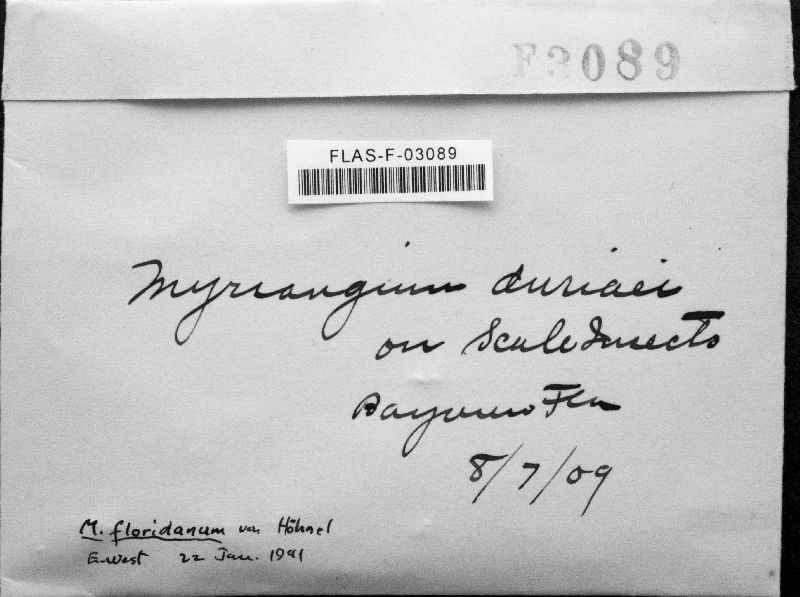 F3089
FLAS-F-03089
Myriangium duriaei
on Scale Insects
Fla
8/7/09
M. floridanum von Höhnel
E. West 22 Jan. 1941